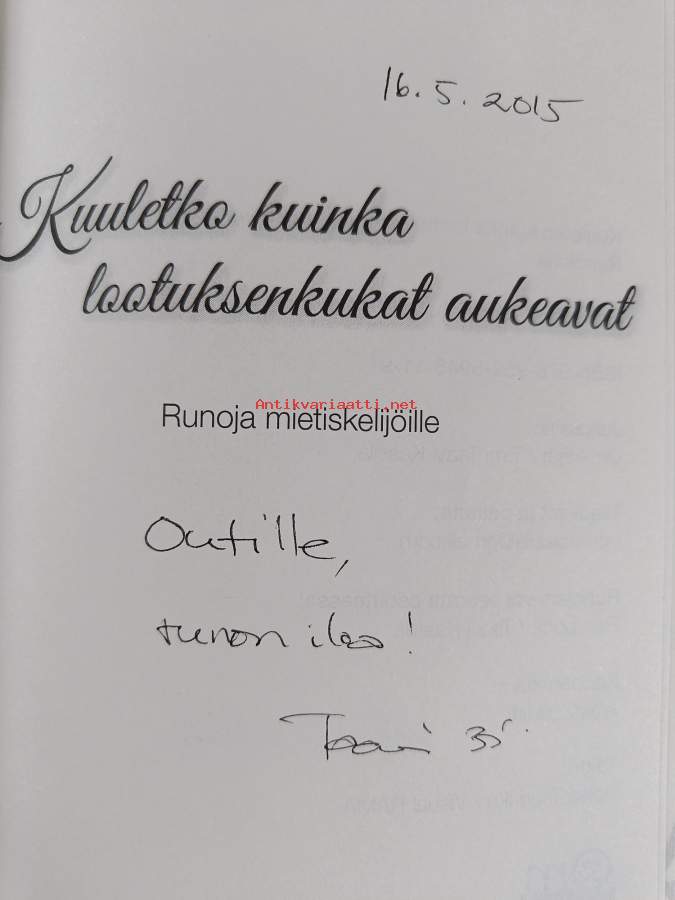 16.5.2015
Kuuletko kuinka
lootuksenkukat aukeavat
Antikvariaatti.net
Runoja mietiskelijöille
Outille,
runon iloa!